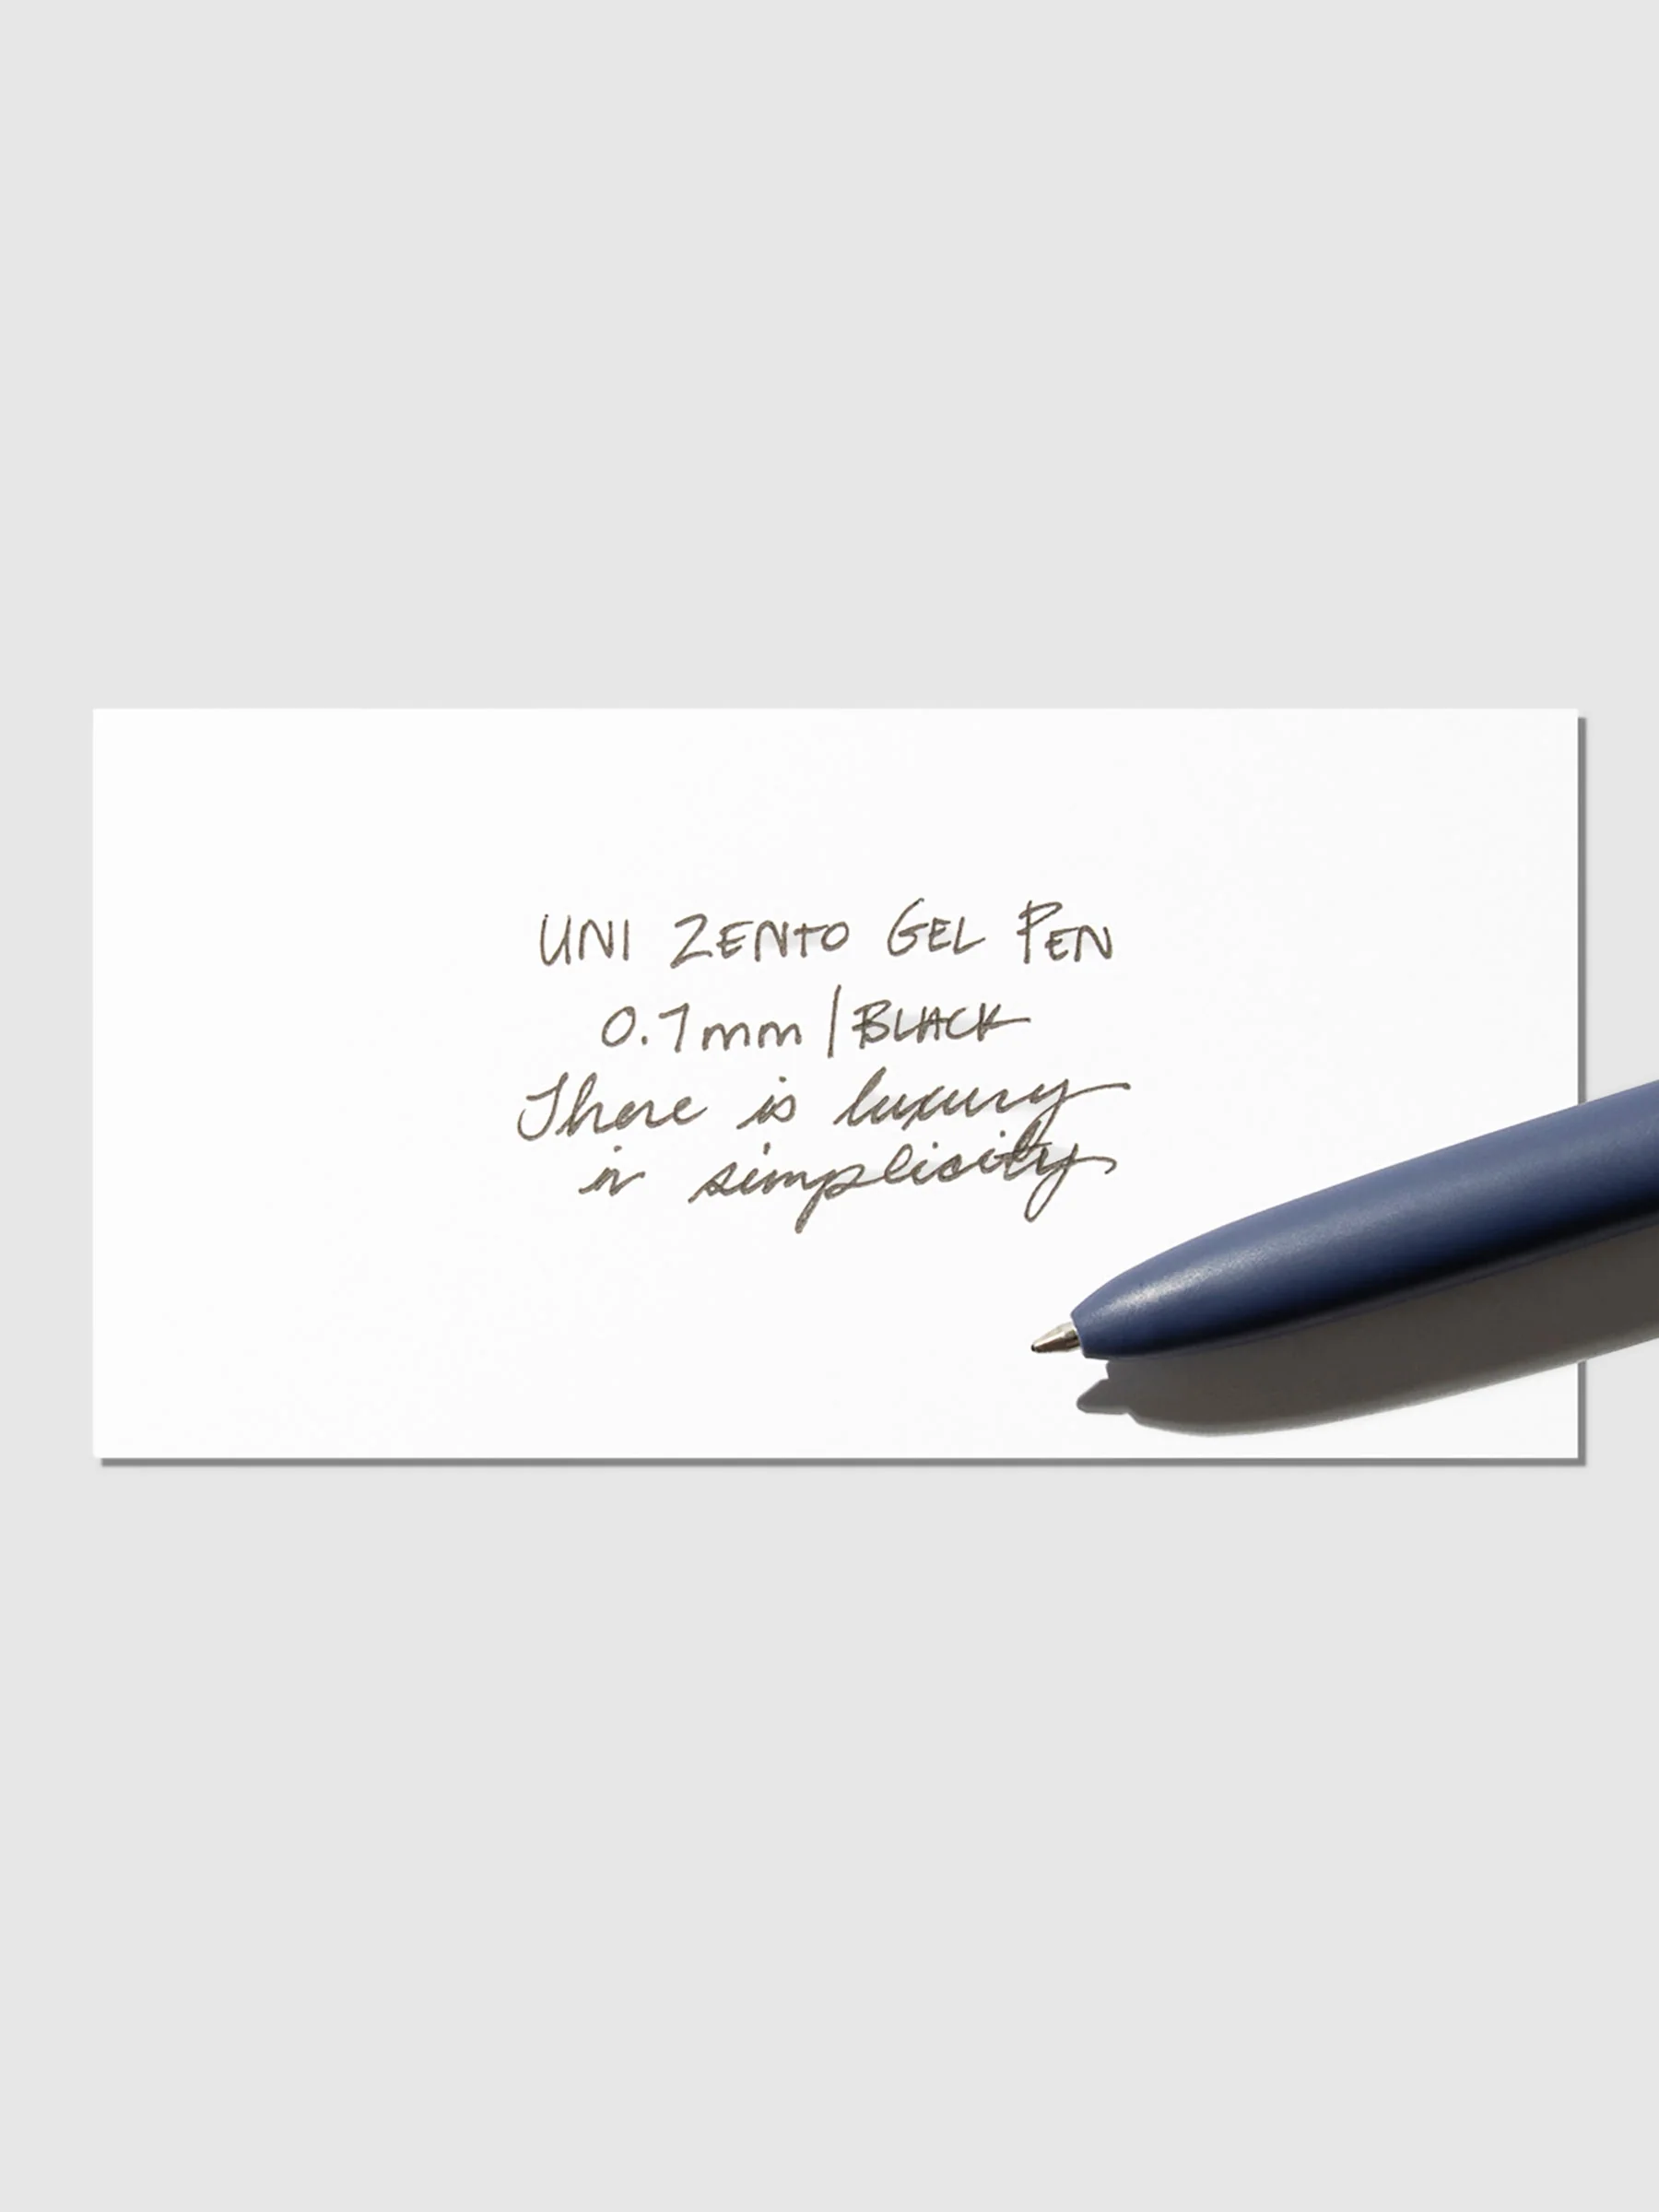 UNI ZENTO GEL PEN
0.7mm | BLACK
There is luxury
in simplicity